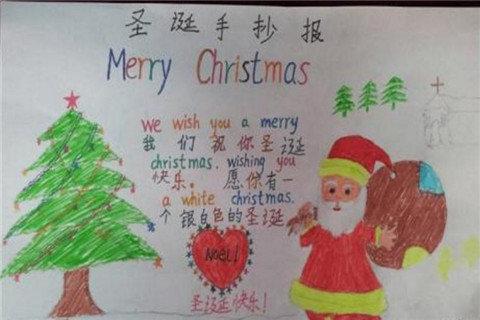 圣诞手抄报
Merry Christmas
we wish you a merry
我们祝你圣诞
christmas. wishing you
快乐。愿你有一
a white christmas.
个银白色的圣诞
Noel!
圣诞快乐!